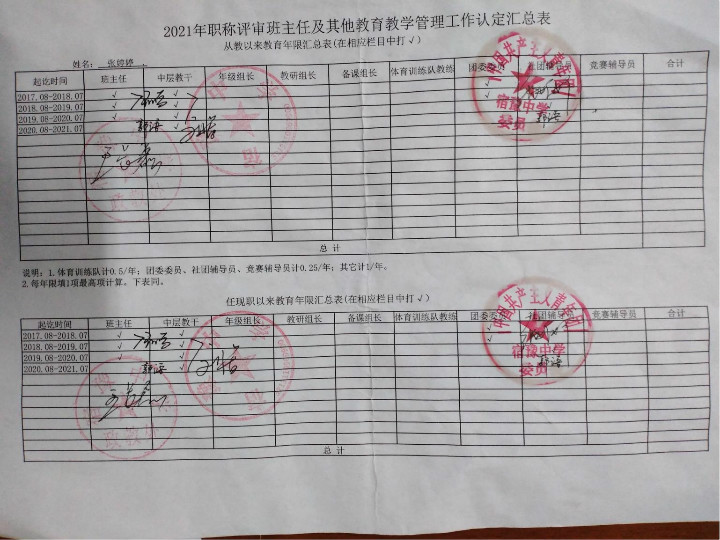 2021年职称评审班主任及其他教育教学管理工作认定汇总表
从教以来教育年限汇总表(在相应栏目中打√)
姓名: 张婷婷
起讫时间 班主任 中层教干 年级组长 教研组长 备课组长 体育训练队教练 团委委员 社团辅导员 竞赛辅导员 合计
2017.08-2018.07 √ √
2018.08-2019.07 √ √
2019.08-2020.07 √ √
2020.08-2021.07
总计
说明:1.体育训练队计0.5/年;团委委员、社团辅导员、竞赛辅导员计0.25/年;其它计1/年。
2.每年限填1项最高项计算。下表同。
任现职以来教育年限汇总表(在相应栏目中打√)
起讫时间 班主任 中层教干 年级组长 教研组长 备课组长 体育训练队教练 团委委员 社团辅导员 竞赛辅导员 合计
2017.08-2018.07 √ √ √
2018.08-2019.07 √ √
2019.08-2020.07 √ √
2020.08-2021.07
总计
中国共产主义青年团
宿豫中学
委员
中国共产主义青年团
宿豫中学
委员